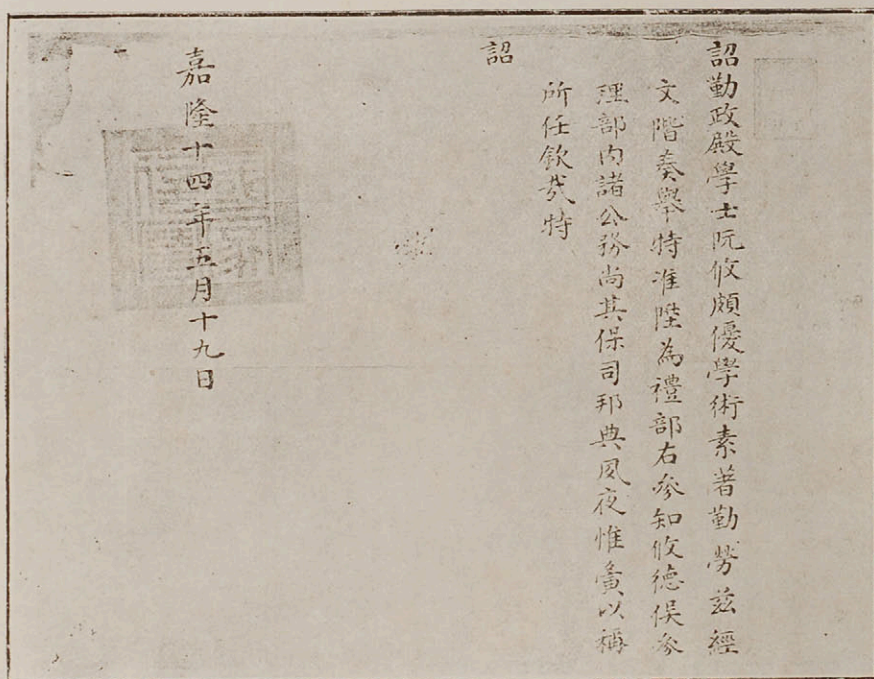 詔勤政殿學士阮攸頗優學術素著勤勞茲經
文階奏舉特准陞為禮部右參知攸德侯參
理部內諸公務尚其保司邦典夙夜惟寅以稱
所任欽哉特
詔
嘉隆十四年五月十九日